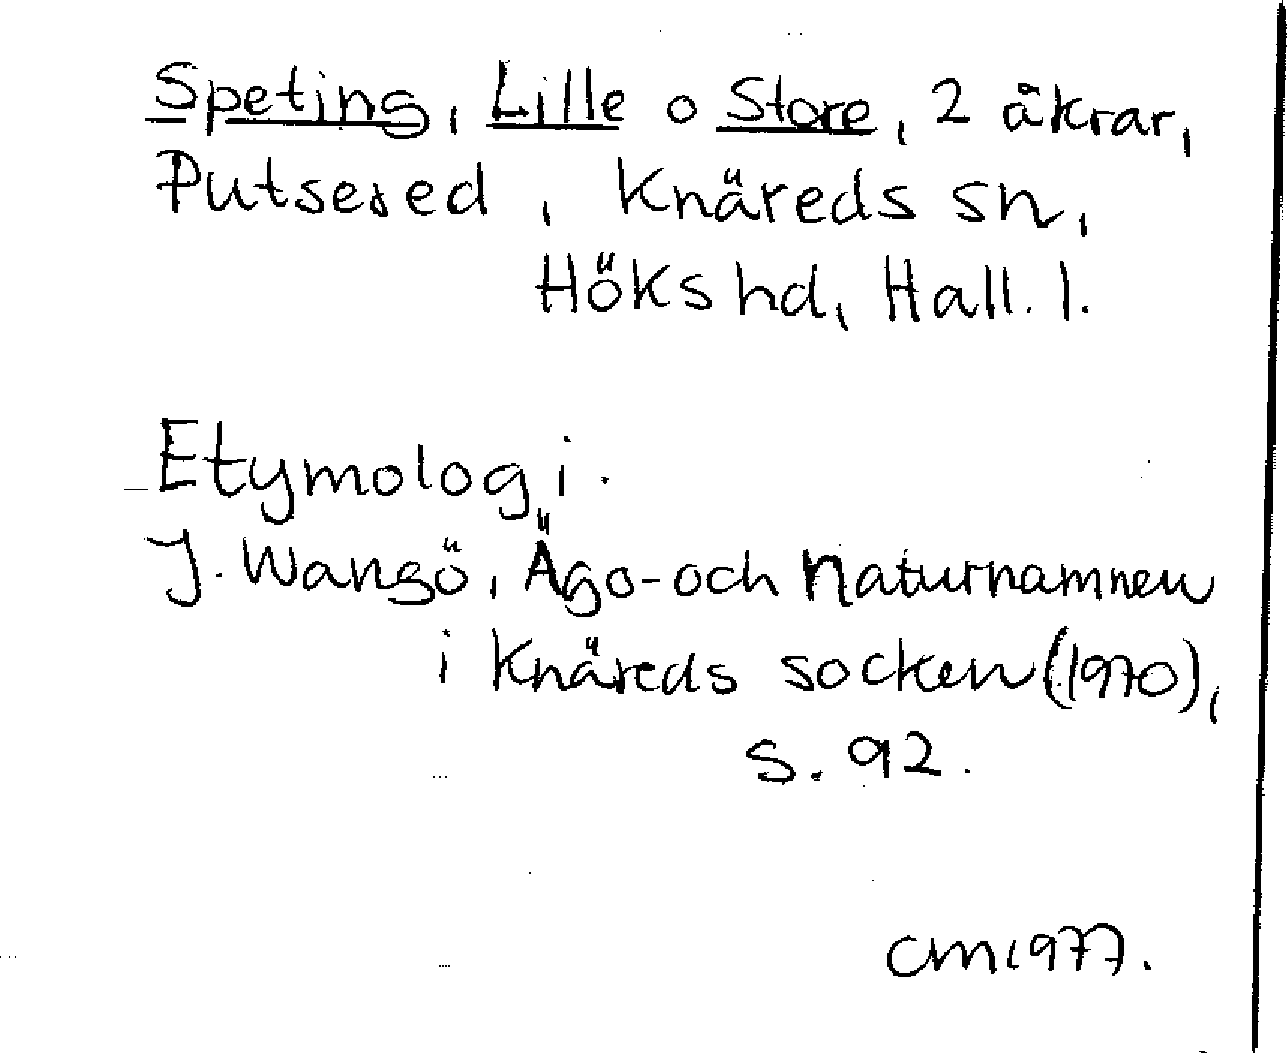 Speting, Lille o Store, 2 åkrar,
Putsered, Knäreds sn,
Höks hd, Hall. l.
Etymologi.
J. Wangö, Ägo- och naturnamnen
i Knäreds socken (1970),
s. 92.
CM 1977.